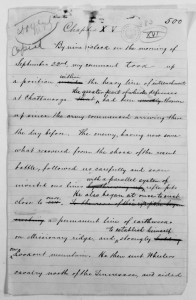 500
Copied
Chapter XV
XVI
By nine o'clock on the morning of
September 22nd, my command took up
a position within the heavy line of intrenchments
the greater part of which defenses
at Chattanooga, had been thrown
up since the army commenced arriving there
the day before. The enemy, having now some
what recovered from the shock of the recent
battle, followed us carefully and soon
with a parallel system of
invested our lines rifle-pits
He also began at once to erect
close to our
permanent line of earthworks
to establish himself
on Missionary ridge, and strongly
Lookout mountain. He then sent Wheeler's
cavalry north of the Tennessee, and aided